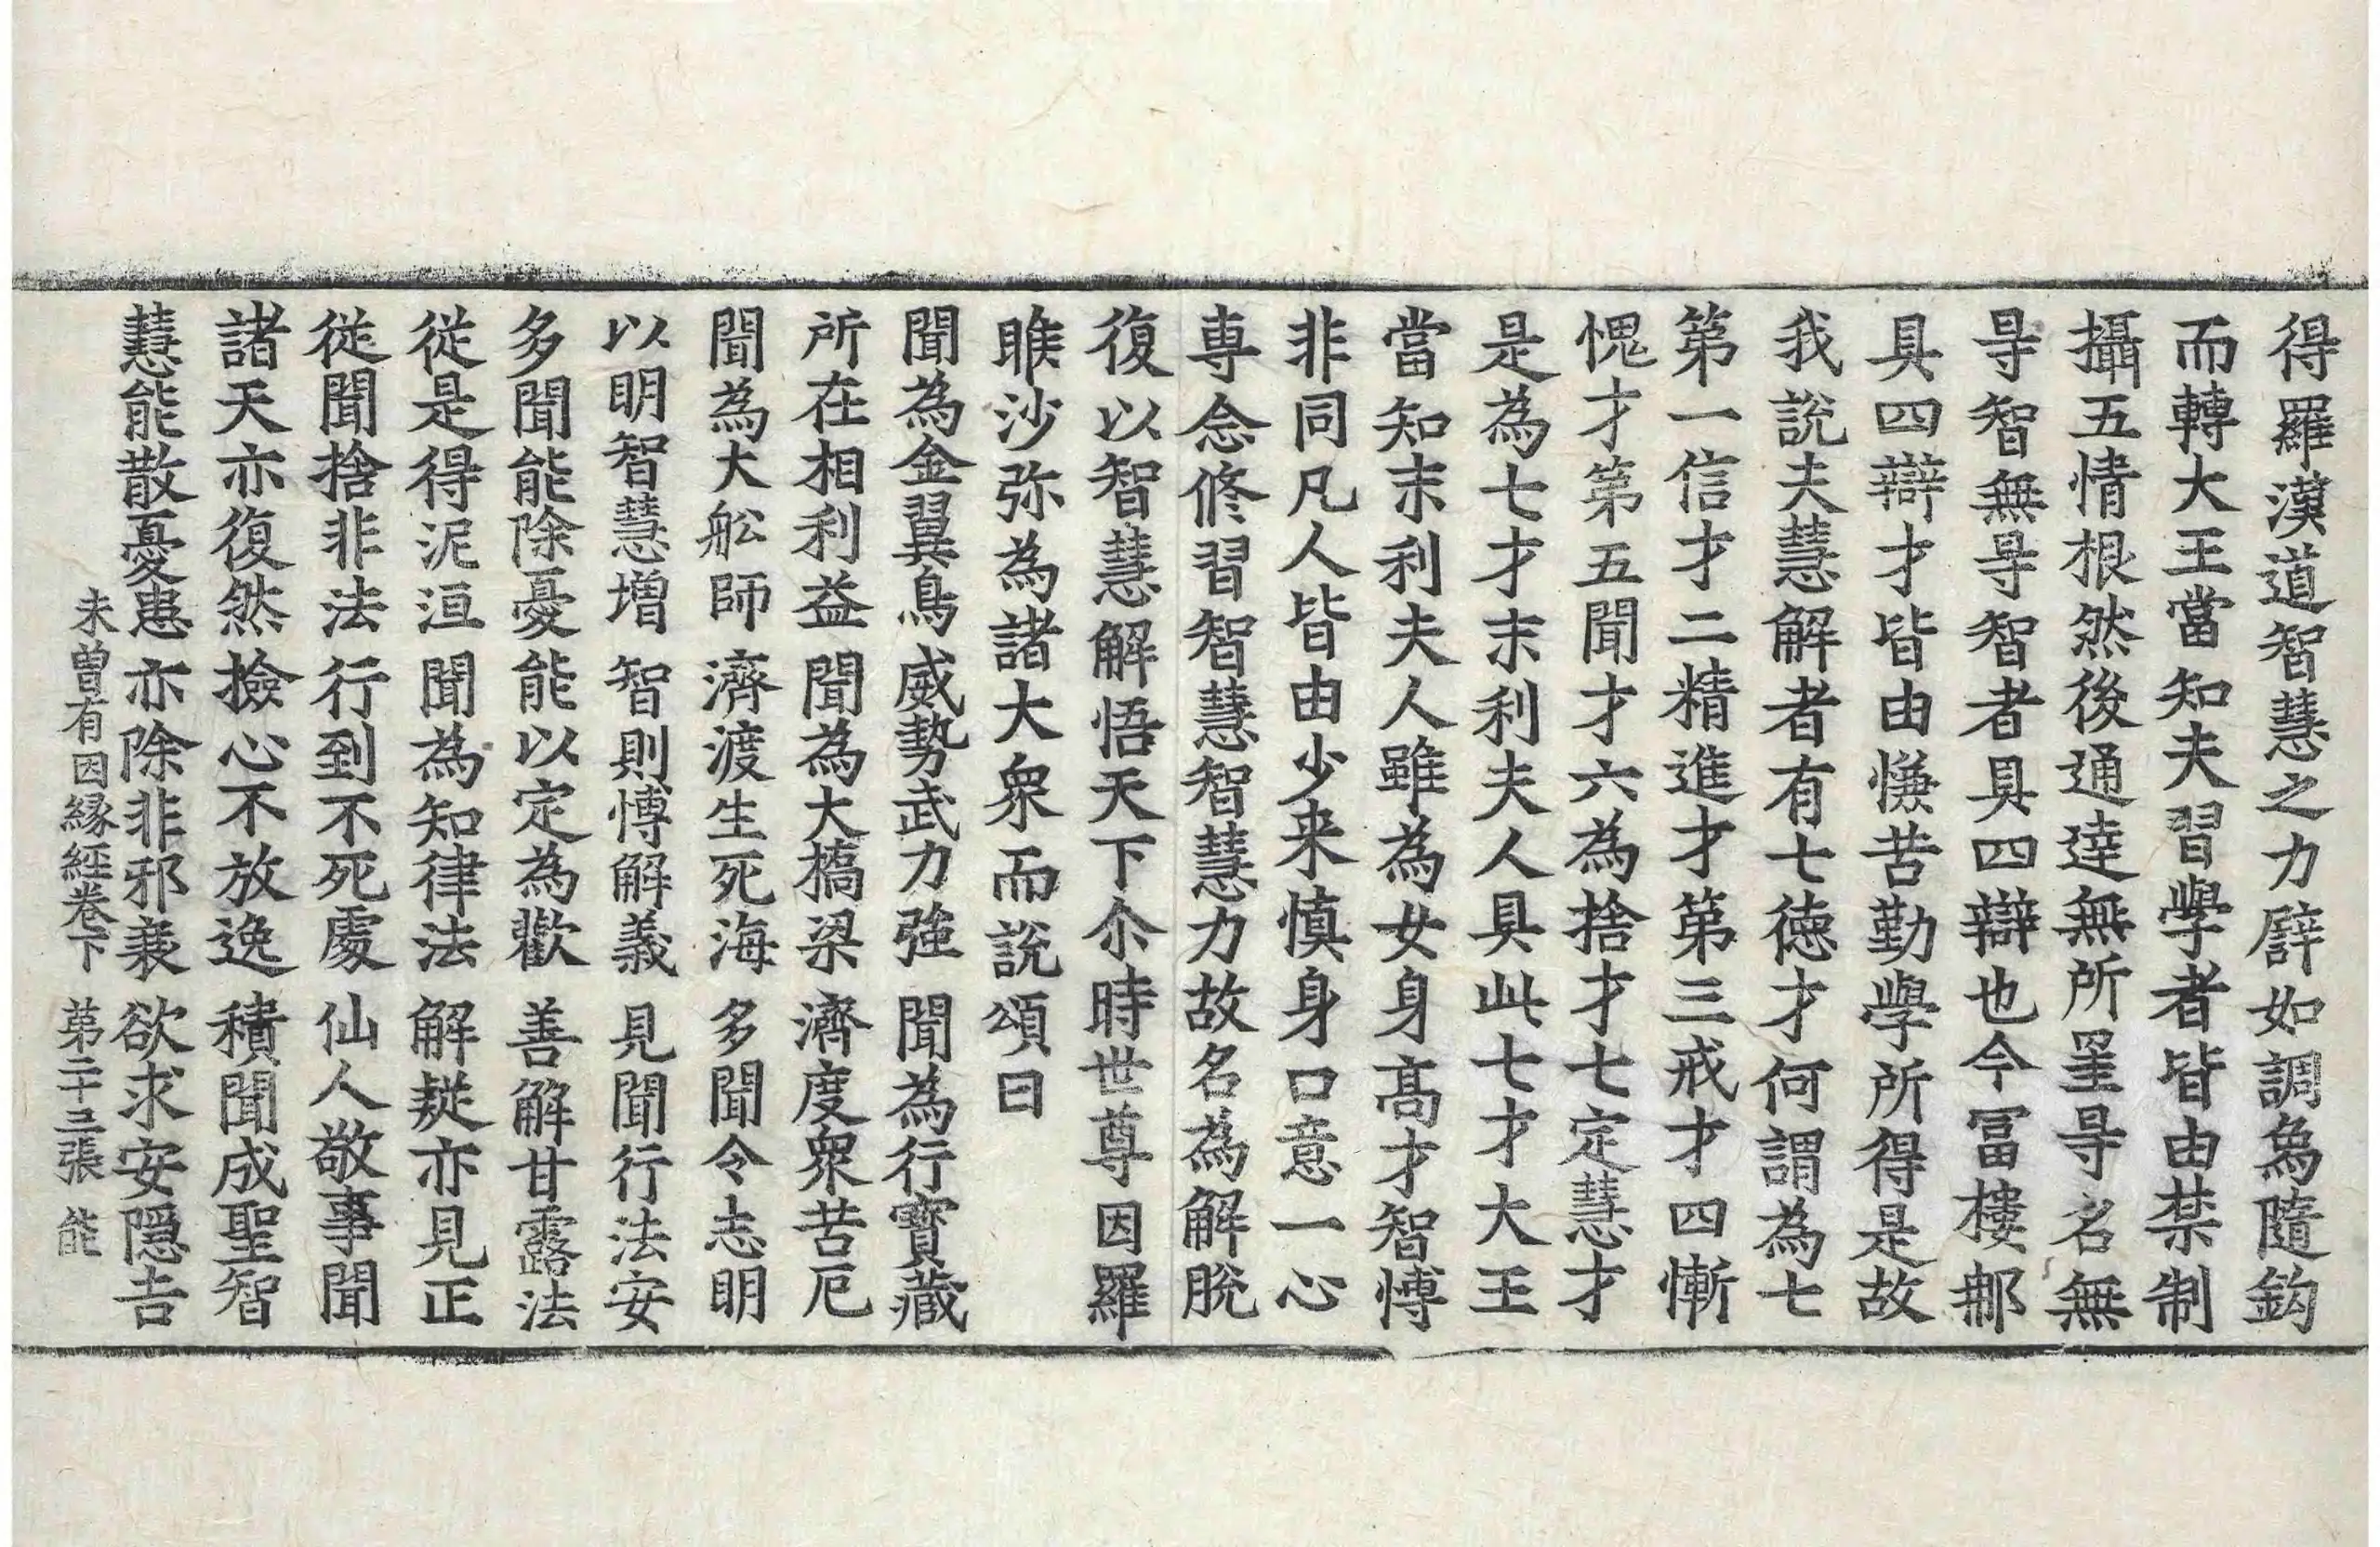 得羅漢道智慧之力譬如調象隨鈎
而轉大王當知夫習學者皆由禁制
攝五情根然後通達無所罣㝵名無
㝵智無㝵智者具四辯也今冨樓那
具四辯才皆由慊苦勤學所得是故
我說夫慧解者有七德才何謂為七
第一信才二精進才第三戒才四慚
愧才第五聞才六為捨才七定慧才
是為七才末利夫人具此七才大王
當知末利夫人雖為女身髙才智愽
非同凡人皆由少来慎身口意一心
専念修習智慧智慧力故名為解脫
復以智慧解悟天下尒時世尊因羅
睺沙弥為諸大衆而說頌曰
聞為金翼鳥 威勢武力強 聞為行寶藏
所在相利益 聞為大橋梁 濟度衆苦厄
聞為大舩師 濟渡生死海 多聞令志明
以明智慧增 智則愽解義 見聞行法安
多聞能除憂 能以定為歡 善解甘露法
從是得泥洹 聞為知律法 解疑亦見正
從聞捨非法 行到不死處 仙人敬事聞
諸天亦復然 撿心不放逸 積聞成聖智
慧能散憂患 亦除非邪衰 欲求安隱吉
未曽有因縁經卷下 第二十三張 能